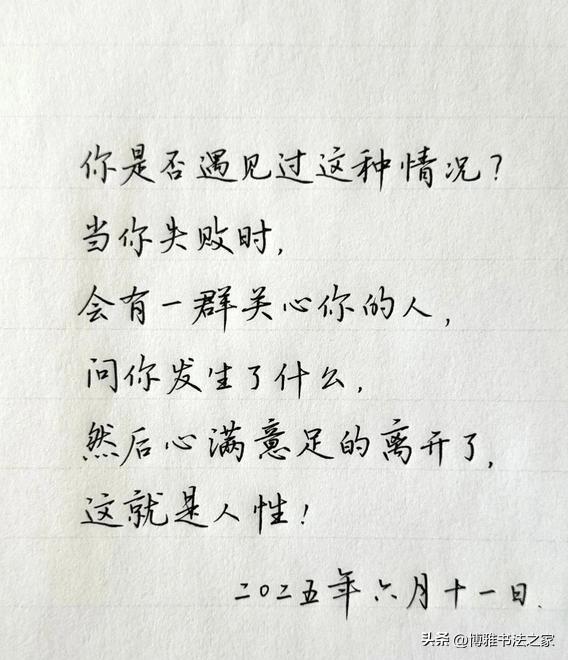 你是否遇见过这种情况？
当你失败时，
会有一群关心你的人，
问你发生了什么，
然后心满意足的离开了，
这就是人性！
二〇二五年六月十一日.
头条 @博雅书法之家